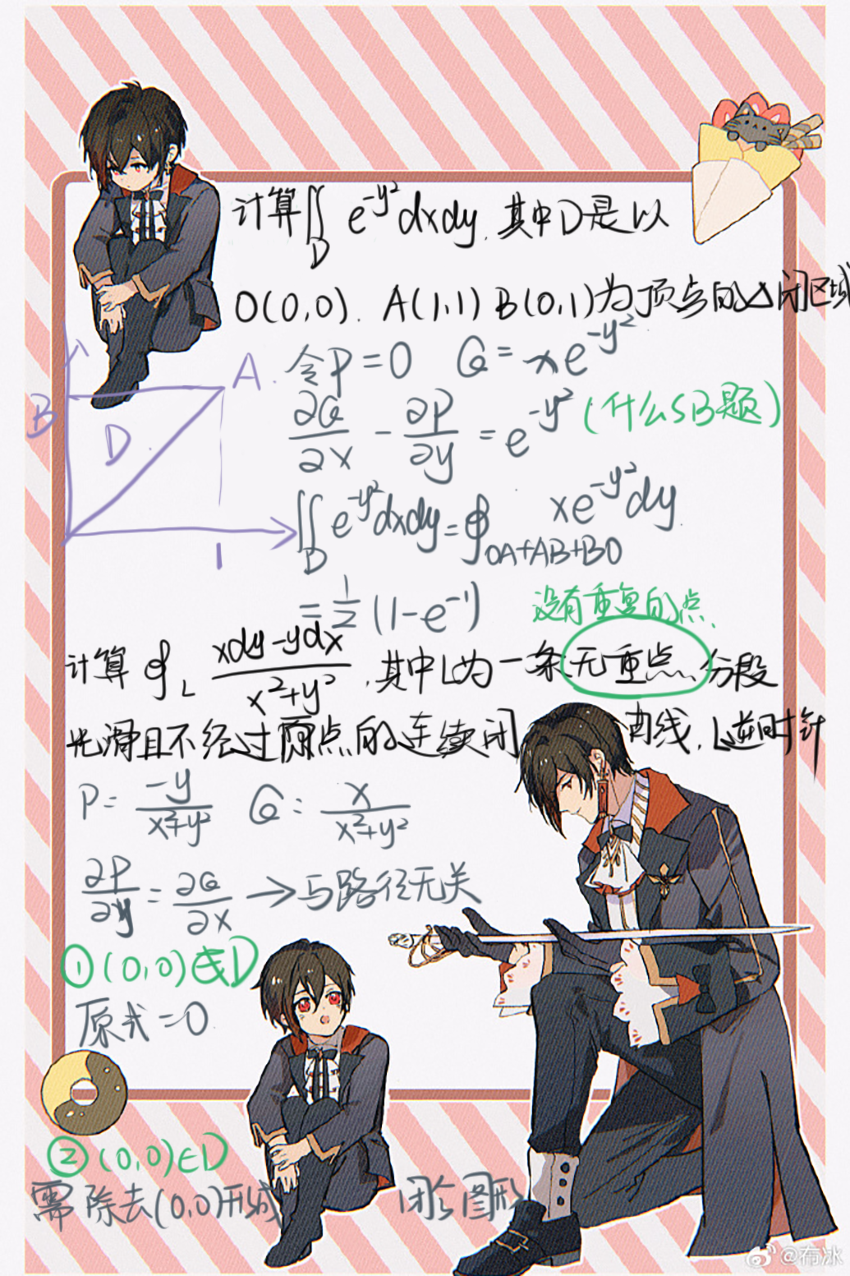 计算∬_D e^{-y²}dxdy,其中D是以
O(0,0). A(1,1) B(0,1)为顶点的△闭区域
令P=0 Q=xe^{-y²}
∂Q/∂x - ∂P/∂y = e^{-y²} (什么SB题)
A
B
D
1
∬_D e^{-y²}dxdy=∮_{OA+AB+BO} xe^{-y²}dy
=1/2(1-e^{-1}) 没有重复的点
计算∮_L (xdy-ydx)/(x²+y²),其中L为一条无重点、分段
光滑且不经过原点的连续闭曲线,L逆时针
P=-y/(x²+y²) Q=x/(x²+y²)
∂P/∂y=∂Q/∂x→与路径无关
①(0,0)∉D
原式=0
②(0,0)∈D
需除去(0,0)形成 闭合图形
@布冰